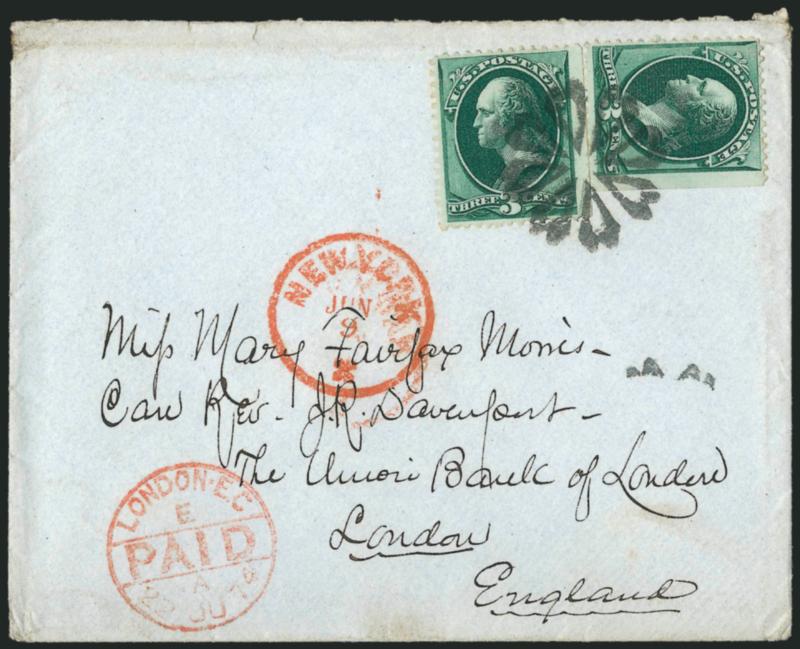 U.S. POSTAGE
THREE 3 CENTS
U.S. POSTAGE
THREE 3 CENTS
NEW YORK
JUN
9
Miss Mary Fairfax Morris -
Care Rev. J. R. Davenport -
The Union Bank of London
London
England
LONDON·E.C
E
PAID
A
JU